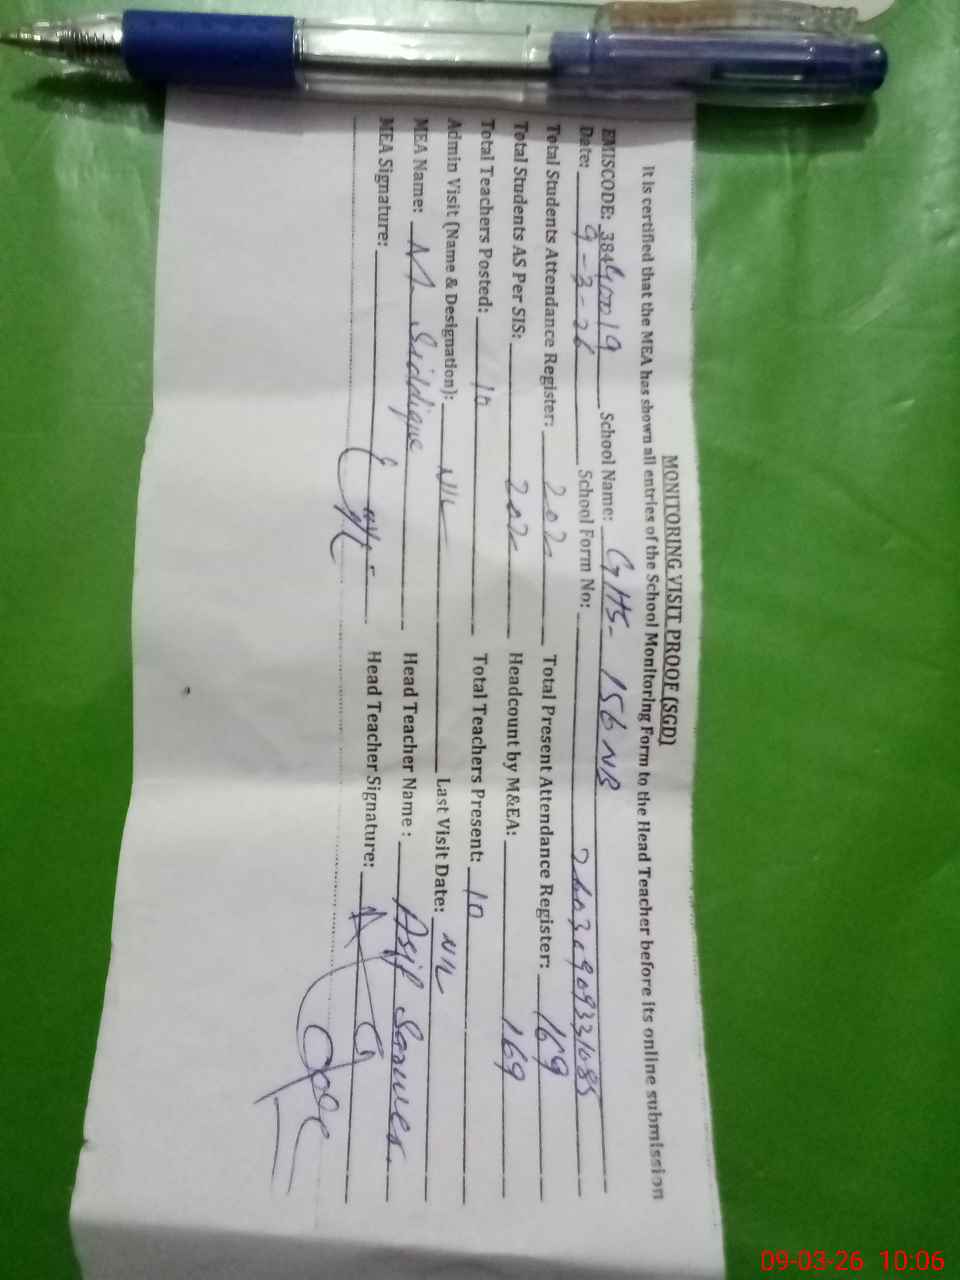 MONITORING VISIT PROOF (SGD)
It is certified that the MEA has shown all entries of the School Monitoring Form to the Head Teacher before its online submission
EMISCODE: 38440019 School Name: GHS- 156 NB
Date: 9-3-26 School Form No:
Total Students Attendance Register: 202 Total Present Attendance Register: 169
Total Students AS Per SIS: 202 Headcount by M&EA: 169
Total Teachers Posted: 10 Total Teachers Present: 10
Admin Visit (Name & Designation): NIL Last Visit Date: NIL
MEA Name: M. Siddique Head Teacher Name : Asif Sarwer.
MEA Signature: Head Teacher Signature:
09-03-26 10:06